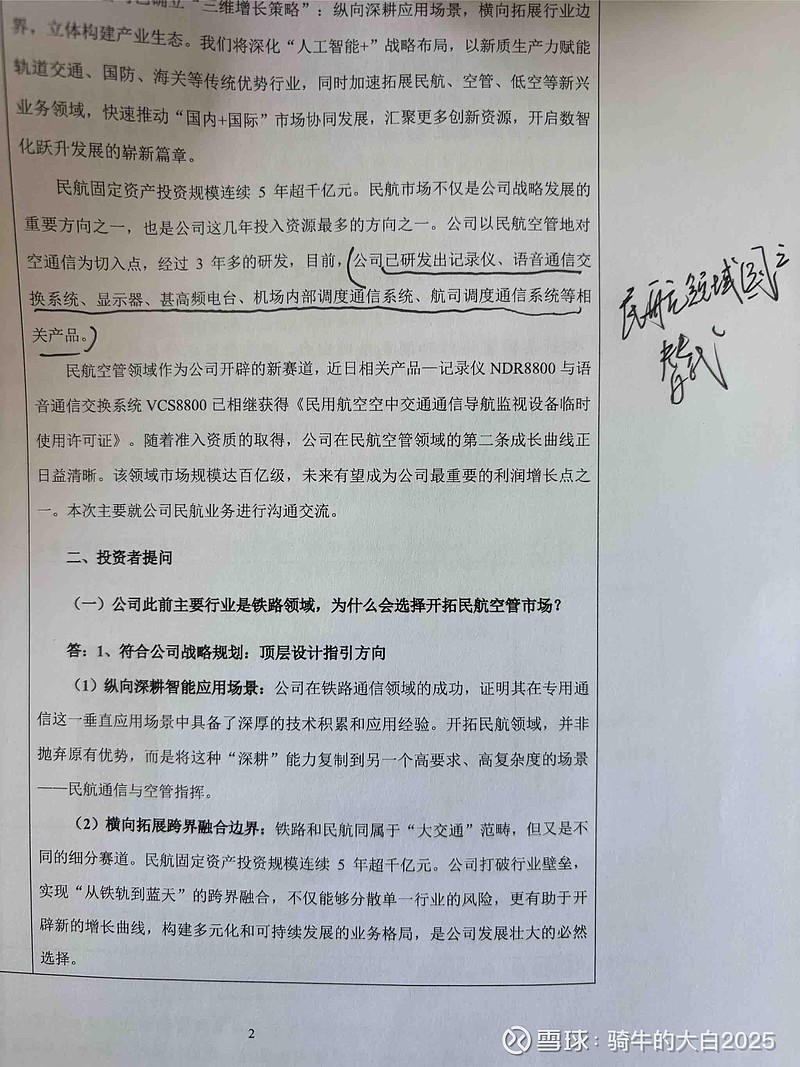 已确立“三维增长策略”：纵向深耕应用场景，横向拓展行业边
界，立体构建产业生态。我们将深化“人工智能+”战略布局，以新质生产力赋能
轨道交通、国防、海关等传统优势行业，同时加速拓展民航、空管、低空等新兴
业务领域，快速推动“国内+国际”市场协同发展，汇聚更多创新资源，开启数智
化跃升发展的崭新篇章。
民航固定资产投资规模连续 5 年超千亿元。民航市场不仅是公司战略发展的
重要方向之一，也是公司这几年投入资源最多的方向之一。公司以民航空管地对
空通信为切入点，经过 3 年多的研发，目前，公司已研发出记录仪、语音通信交
换系统、显示器、甚高频电台、机场内部调度通信系统、航司调度通信系统等相
关产品。
民航领域国产
替代
民航空管领域作为公司开辟的新赛道，近日相关产品—记录仪 NDR8800 与语
音通信交换系统 VCS8800 已相继获得《民用航空空中交通通信导航监视设备临时
使用许可证》。随着准入资质的取得，公司在民航空管领域的第二条成长曲线正
日益清晰。该领域市场规模达百亿级，未来有望成为公司最重要的利润增长点之
一。本次主要就公司民航业务进行沟通交流。
二、投资者提问
（一）公司此前主要行业是铁路领域，为什么会选择开拓民航空管市场？
答：1、符合公司战略规划：顶层设计指引方向
（1）纵向深耕智能应用场景：公司在铁路通信领域的成功，证明其在专用通
信这一垂直应用场景中具备了深厚的技术积累和应用经验。开拓民航领域，并非
抛弃原有优势，而是将这种“深耕”能力复制到另一个高要求、高复杂度的场景
——民航通信与空管指挥。
（2）横向拓展跨界融合边界：铁路和民航同属于“大交通”范畴，但又是不
同的细分赛道。民航固定资产投资规模连续 5 年超千亿元。公司打破行业壁垒，
实现“从铁轨到蓝天”的跨界融合，不仅能够分散单一行业的风险，更有助于开
辟新的增长曲线，构建多元化和可持续发展的业务格局，是公司发展壮大的必然
选择。
2
雪球：骑牛的大白2025